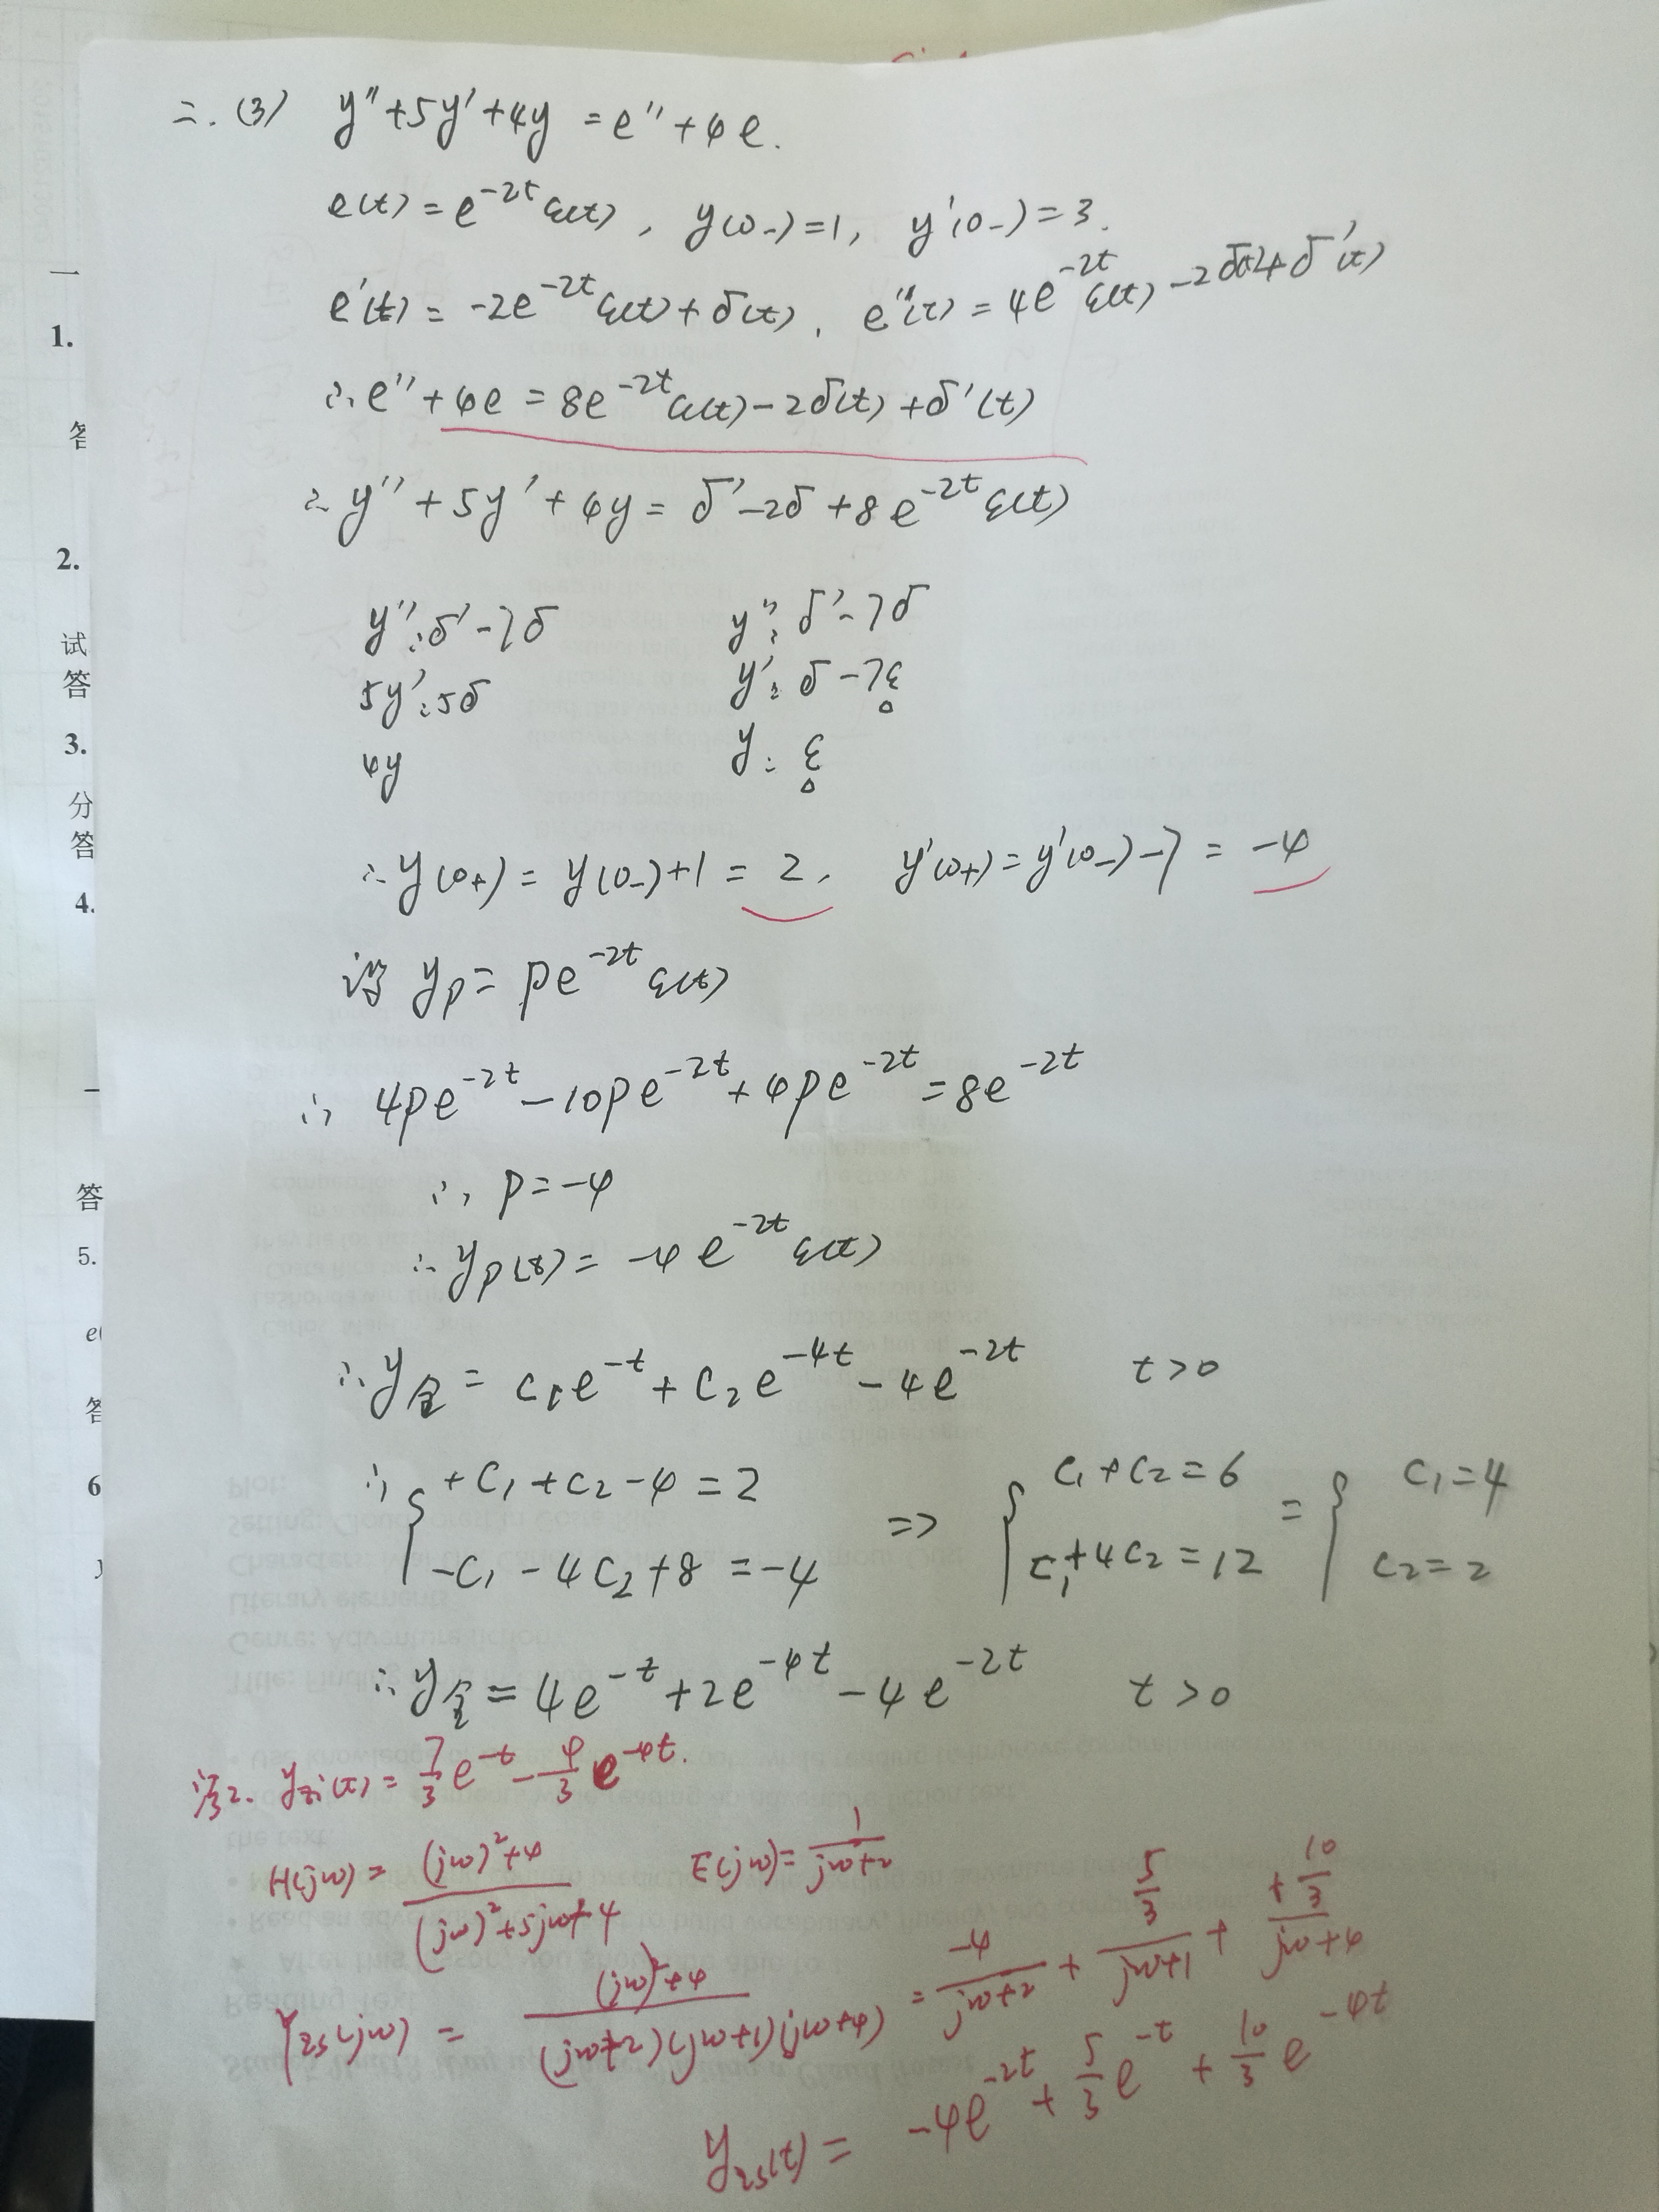 二.(3) y''+5y'+4y = e''+4e.
e(t)=e^{-2t}ε(t), y(0-)=1, y'(0-)=3.
e'(t)=-2e^{-2t}ε(t)+δ(t), e''(t)=4e^{-2t}ε(t)-2δ(t)+δ'(t)
∴e''+4e=8e^{-2t}ε(t)-2δ(t)+δ'(t)
∴y''+5y'+4y=δ'-2δ+8e^{-2t}ε(t)
y'':δ'-7δ y'':δ'-7δ
5y':5δ y':δ-7ε
4y y:ε
∴y(0+)=y(0-)+1=2, y'(0+)=y'(0-)-7=-4
设 yp=pe^{-2t}ε(t)
∴ 4pe^{-2t}-10pe^{-2t}+4pe^{-2t}=8e^{-2t}
∴ p=-4
∴yp(t)=-4e^{-2t}ε(t)
∴y全=c1e^{-t}+c2e^{-4t}-4e^{-2t} t>0
∴{+c1+c2-4=2 => {c1+c2=6 = {c1=4
-c1-4c2+8=-4 c1+4c2=12 c2=2
∴y全=4e^{-t}+2e^{-4t}-4e^{-2t} t>0
法2. yzi(t)=7/3 e^{-t}-4/3 e^{-4t}.
H(jw)=((jw)²+4)/((jw)²+5jw+4) E(jw)=1/(jw+2)
Yzs(jw)=((jw)²+4)/((jw+2)(jw+1)(jw+4))=-4/(jw+2)+(5/3)/(jw+1)+(+10/3)/(jw+4)
yzs(t)=-4e^{-2t}+5/3 e^{-t}+10/3 e^{-4t}
一
1.
答
2.
试
答
3.
分
答
4.
答
5.
e(
答
6